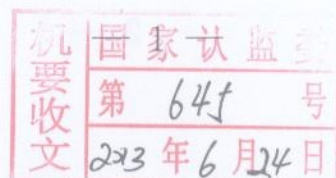 机要收文
国家认监委
1
第 645 号
2013 年 6 月 24 日